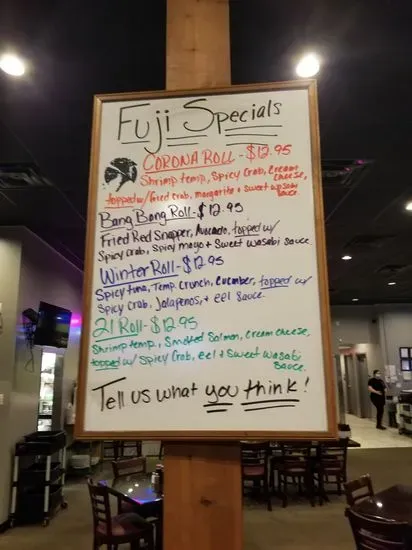 Fuji Specials
CORONA ROLL - $12.95
Shrimp temp, Spicy Crab, Cream Cheese,
topped w/ fried crab, margarita + sweet wasabi sauce.
Bang Bang Roll - $12.95
Fried Red Snapper, Avocado, topped w/
Spicy Crab, Spicy mayo + Sweet Wasabi Sauce
Winter Roll - $12.95
Spicy tuna, Temp. Crunch, Cucumber, topped w/
Spicy Crab, Jalapenos, + eel sauce.
21 Roll - $12.95
Shrimp temp., Smoked Salmon, Cream cheese,
topped w/ Spicy Crab, eel + Sweet Wasabi Sauce.
Tell us what you think!